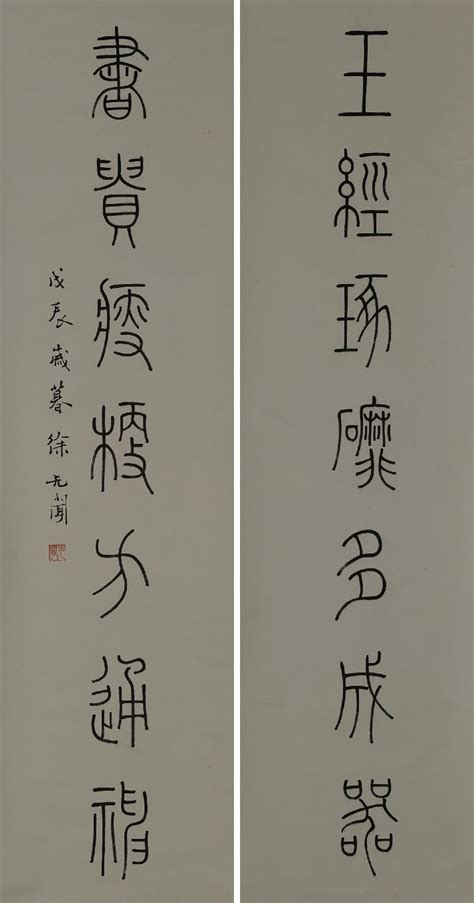 玉經琢磨多成器
書貴瘦梗方通神
戊辰歲暮徐无聞